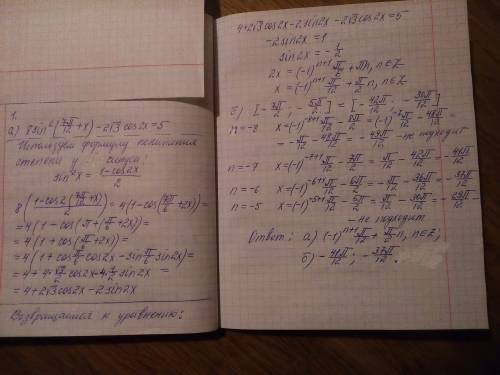 1.
а) 8sin²(7π/12 + x) - 2√3 cos2x = 5
Использую формулу понижения
степени у синуса:
sin²x = (1-cos2x)/2
= 4(1 - cos(π + (π/6 + 2x)) =
= 4(1 + cos(π/6 + 2x)) =
= 4(1 + cos π/6 cos2x - sin π/6 sin2x) =
= 4 + 2√3 cos2x - 2sin2x
Возвращаемся к уравнению:
4 + 2√3 cos2x - 2sin2x - 2√3 cos2x = 5
-2sin2x = 1
sin2x = -1/2
2x = (-1)ⁿ⁺¹ π/6 + πn, n∈Z
x = (-1)ⁿ⁺¹ π/12 + π/2 n, n∈Z
б) [-7π/2 ; -5π/2] = [-42π/12 ; -30π/12]
= -π/12 - 48π/12 = -49π/12 - не подходит
n=-7 x = (-1)⁻⁷⁺¹ π/12 - 7π/2 = π/12 - 42π/12 = -41π/12
n=-6 x = (-1)⁻⁶⁺¹ π/12 - 6π/2 = -π/12 - 36π/12 = -37π/12
n=-5 x = (-1)⁻⁵⁺¹ π/12 - 5π/2 = π/12 - 30π/12 = -29π/12 -
- не подходит
Ответ: а) (-1)ⁿ⁺¹ π/12 + π/2 n, n∈Z;
б) -41π/12 ; -37π/12.